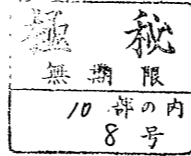 極秘
無期限
10部の内
8号